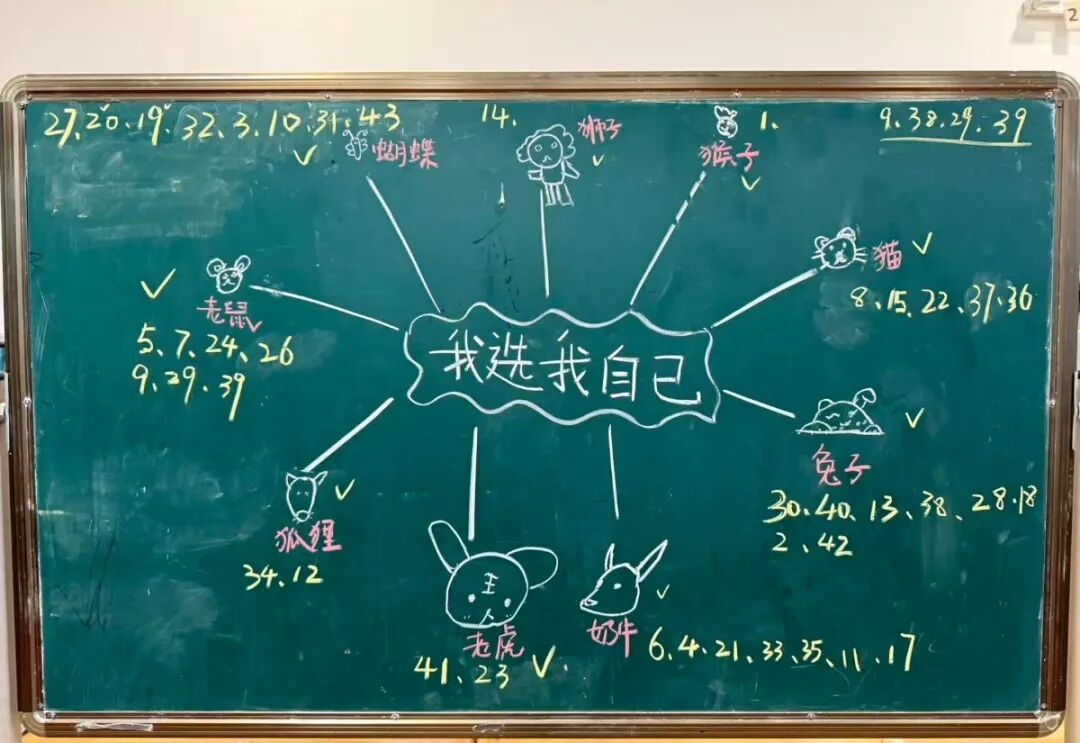 27、20、19、32、3、10、31、43
蝴蝶
14、
狮子
1、
猴子
9、38、29、39
猫
8、15、22、37、36
老鼠
5、7、24、26
9、29、39
我选我自己
兔子
30、40、13、38、28、18
2、42
狐狸
34、12
王
老虎
41、23
奶牛
6、4、21、33、35、11、17
2